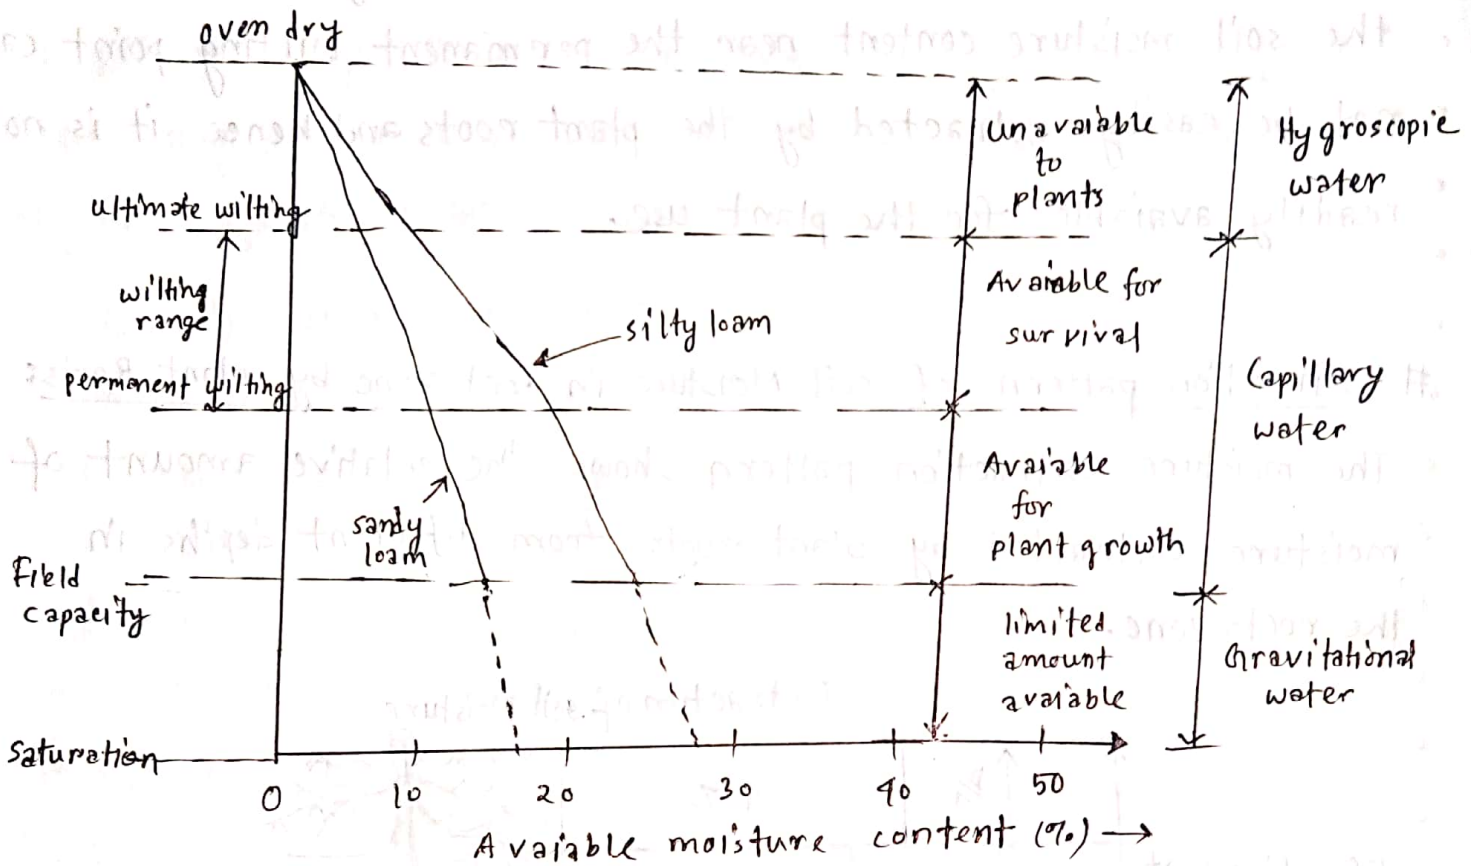 oven dry
ultimate wilting
wilting
range
permenent wilting
Field
capacity
saturation
silty loam
sandy
loam
unavaiable
to
plants
Avaiable for
survival
Avaiable
for
plant growth
limited
amount
avaiable
Hygroscopic
water
Capillary
water
Gravitational
water
0 10 20 30 40 50
Avaiable moisture content (%) →